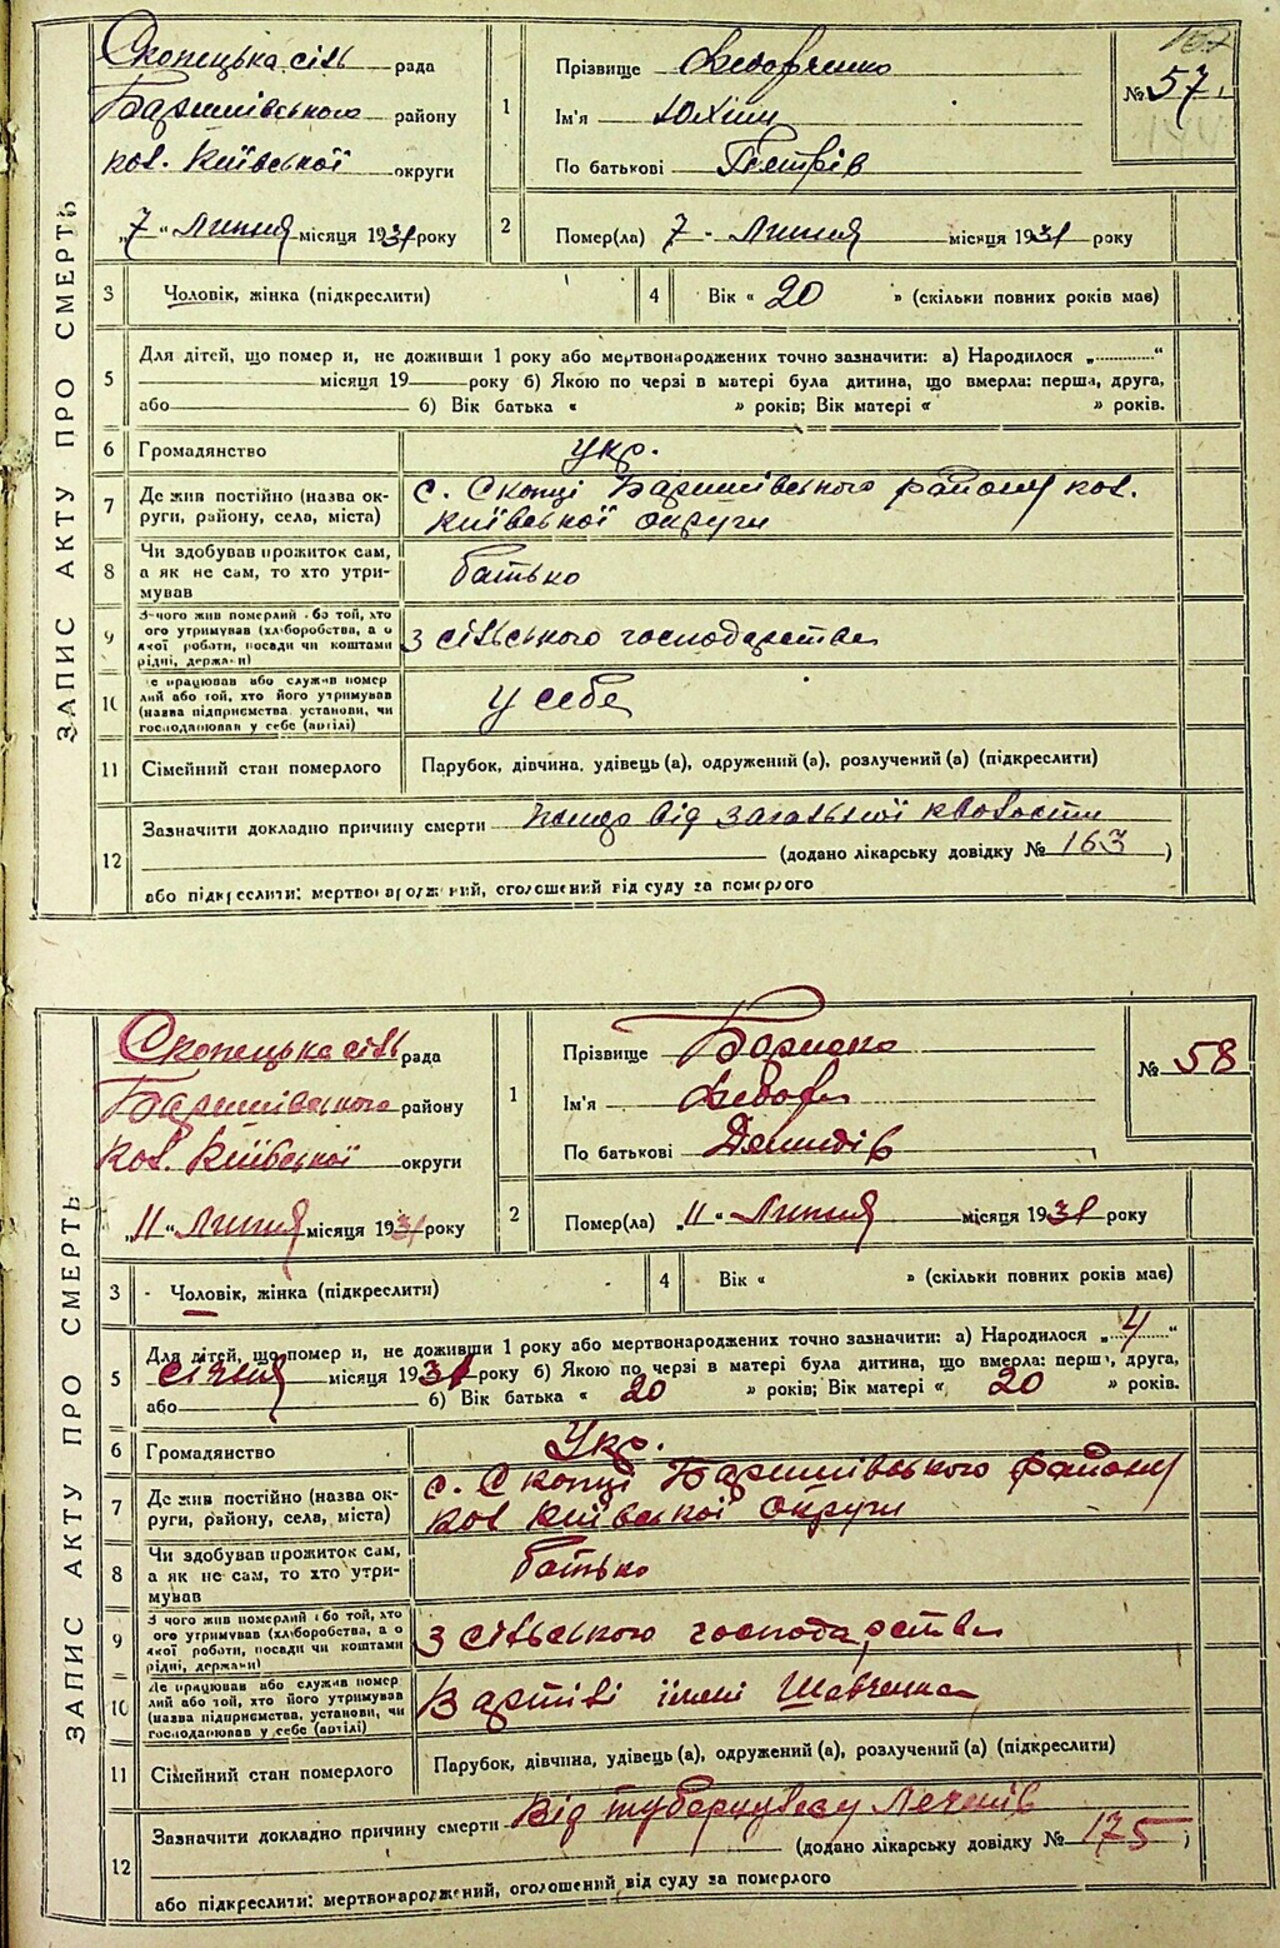 ЗАПИС АКТУ ПРО СМЕРТЬ
Скопецька сіль рада
Баришівського району
кол. Київської округи
„7“ Липня місяця 1931 року
1
Прізвище
Ім'я Юхим
По батькові Петрів
№ 57
2
Помер(ла) 7 - Липня місяця 1931 року
3 Чоловік, жінка (підкреслити)
4 Вік « 20 » (скільки повних років мав)
5 Для дітей, що помер и, не доживши 1 року або мертвонароджених точно зазначити: а) Народилося „ “
місяця 19 року б) Якою по черзі в матері була дитина, що вмерла: перша, друга,
або б) Вік батька « » років; Вік матері « » років.
6 Громадянство укр.
7 Де жив постійно (назва ок-
руги, району, села, міста)
с. Скопці Баришівського району кол.
Київської округи
8 Чи здобував прожиток сам,
а як не сам, то хто утри-
мував
батько
9 З чого жив померлий або той, хто
його утримував (хліборобства, а о
якої роботи, посади чи коштами
рідні, держави)
З сільського господарства
10 Де працював або служив помер
лий або той, хто його утримував
(назва підприємства, установи, чи
господарював у себе (артілі)
у себе
11 Сімейний стан померлого Парубок, дівчина, удівець (а), одружений (а), розлучений (а) (підкреслити)
12 Зазначити докладно причину смерти від загальної кволости
(додано лікарську довідку № 163 )
або підкреслити: мертвонароджений, оголошений від суду за померлого
ЗАПИС АКТУ ПРО СМЕРТЬ
Скопецька сіль рада
Баришівського району
кол. Київської округи
„11“ Липня місяця 1931 року
1
Прізвище
Ім'я
По батькові Демидів
№ 58
2
Помер(ла) „11“ Липня місяця 1931 року
3 Чоловік, жінка (підкреслити)
4 Вік « » (скільки повних років мав)
5 Для дітей, що помер и, не доживши 1 року або мертвонароджених точно зазначити: а) Народилося „4“
січня місяця 1931 року б) Якою по черзі в матері була дитина, що вмерла: перша, друга,
або б) Вік батька « 20 » років; Вік матері « 20 » років.
6 Громадянство Укр.
7 Де жив постійно (назва ок-
руги, району, села, міста)
с. Скопці Баришівського району
кол Київської округи
8 Чи здобував прожиток сам,
а як не сам, то хто утри-
мував
батько
9 З чого жив померлий або той, хто
його утримував (хліборобства, а о
якої роботи, посади чи коштами
рідні, держави)
З сільського господарства
10 Де працював або служив помер
лий або той, хто його утримував
(назва підприємства, установи, чи
господарював у себе (артілі)
В артілі імені Шевченка
11 Сімейний стан померлого Парубок, дівчина, удівець (а), одружений (а), розлучений (а) (підкреслити)
12 Зазначити докладно причину смерти Від туберкульозу Легенів
(додано лікарську довідку № 175 )
або підкреслити: мертвонароджений, оголошений від суду за померлого